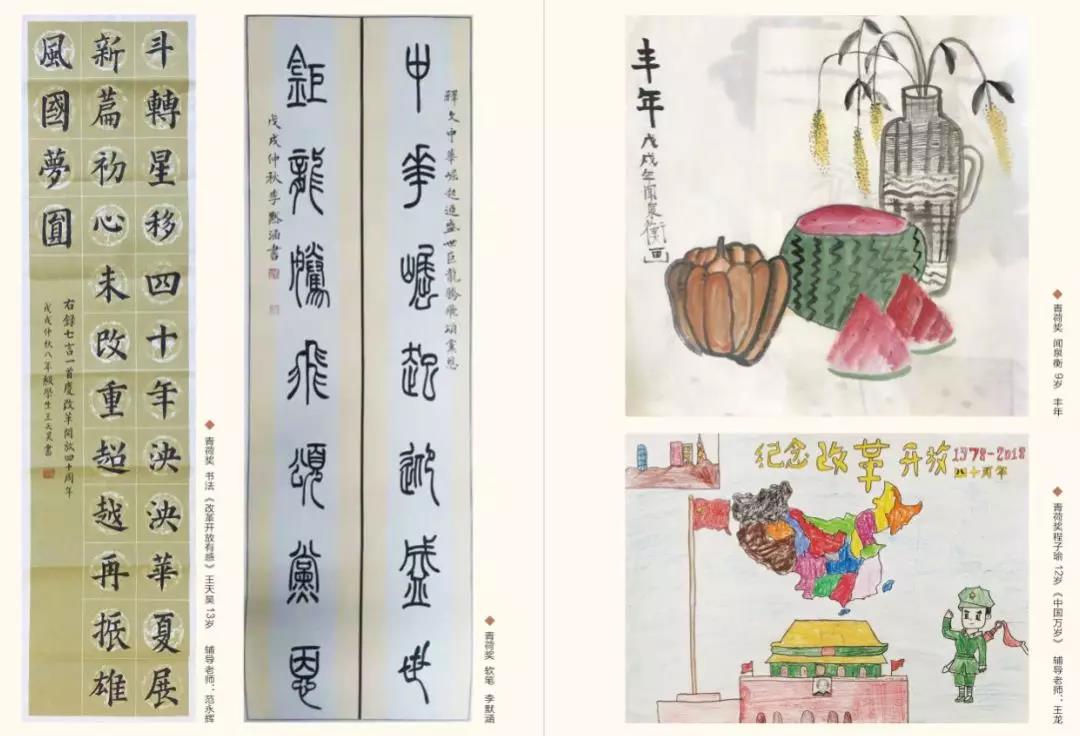 斗轉星移四十年泱泱華夏展
新篇初心未改重超越再振雄
風國夢圓
右録七言一首慶改革開放四十周年
戊戌仲秋八年級學生王天昊書
青荷奖 书法 《改革开放有感》 王天昊 13岁 辅导老师：范永辉
中華崛起迎盛世
釋文中華崛起迎盛世巨龍騰飛頌黨恩
鉅龍騰飛頌黨恩
戊戌仲秋李默涵書
青荷奖 软笔 李默涵
丰年
戊戌年闻泉衡画
青荷奖 闻泉衡 9岁 丰年
纪念改革开放 1978-2018
四十周年
青荷奖程子瑜 12岁 《中国万岁》 辅导老师：王龙